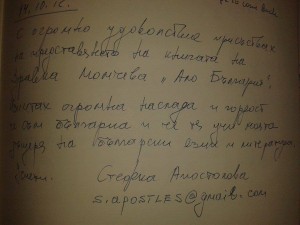 14.10.12.
С огромно удоволствие присъствах
на представянето на книгата на
Момчева „Ало България".
огромна наслада и гордост
съм българка и че тя учи моята
на български език и литература
Стефка Апостолова
s.apostles@gmail.com